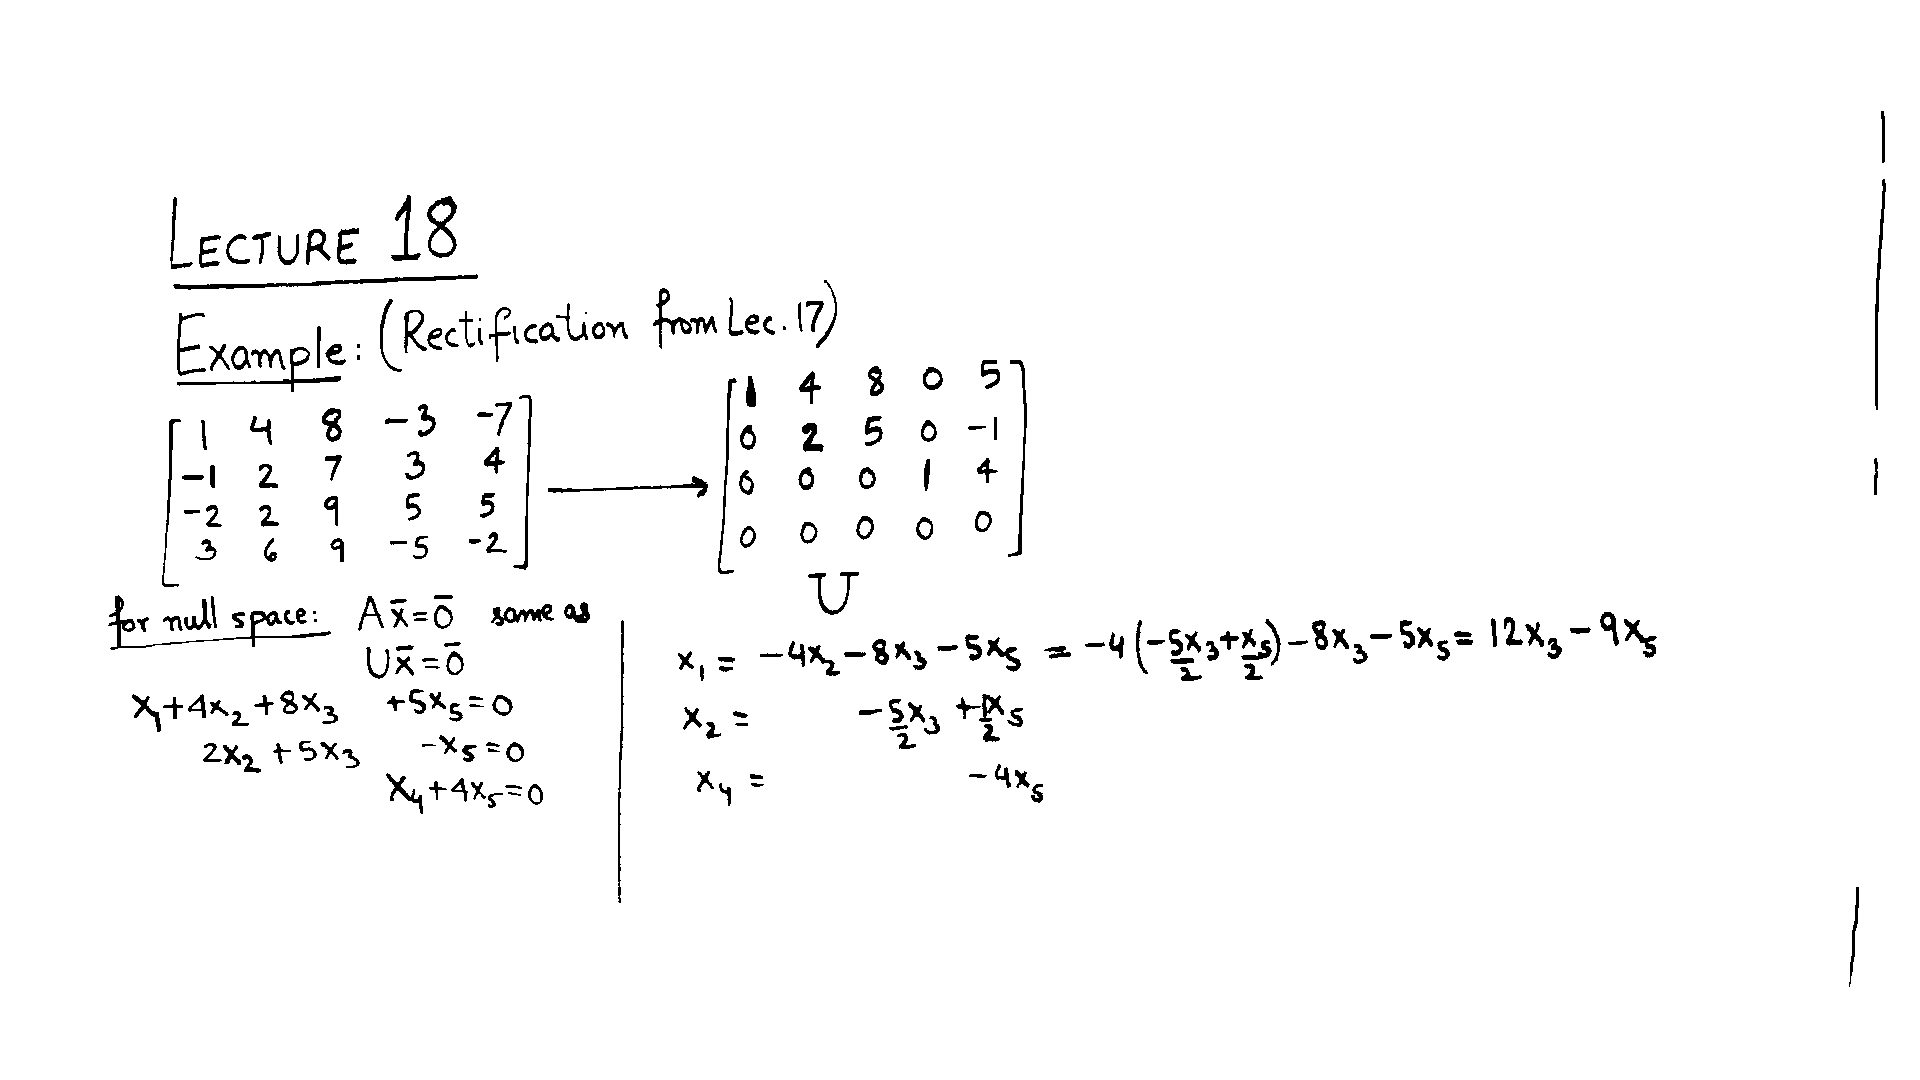 LECTURE 18
Example: (Rectification from Lec. 17)
[1 4 8 -3 -7
-1 2 7 3 4
-2 2 9 5 5
3 6 9 -5 -2]
→
[1 4 8 0 5
0 2 5 0 -1
0 0 0 1 4
0 0 0 0 0]
U
for null space: Ax̄=ō same as
Ux̄=ō
x₁+4x₂+8x₃ +5x₅=0
2x₂+5x₃ -x₅=0
x₄+4x₅=0
x₁ = -4x₂-8x₃-5x₅ = -4(-5/2 x₃+x₅/2)-8x₃-5x₅= 12x₃-9x₅
x₂ = -5/2 x₃ +1/2 x₅
x₄ = -4x₅